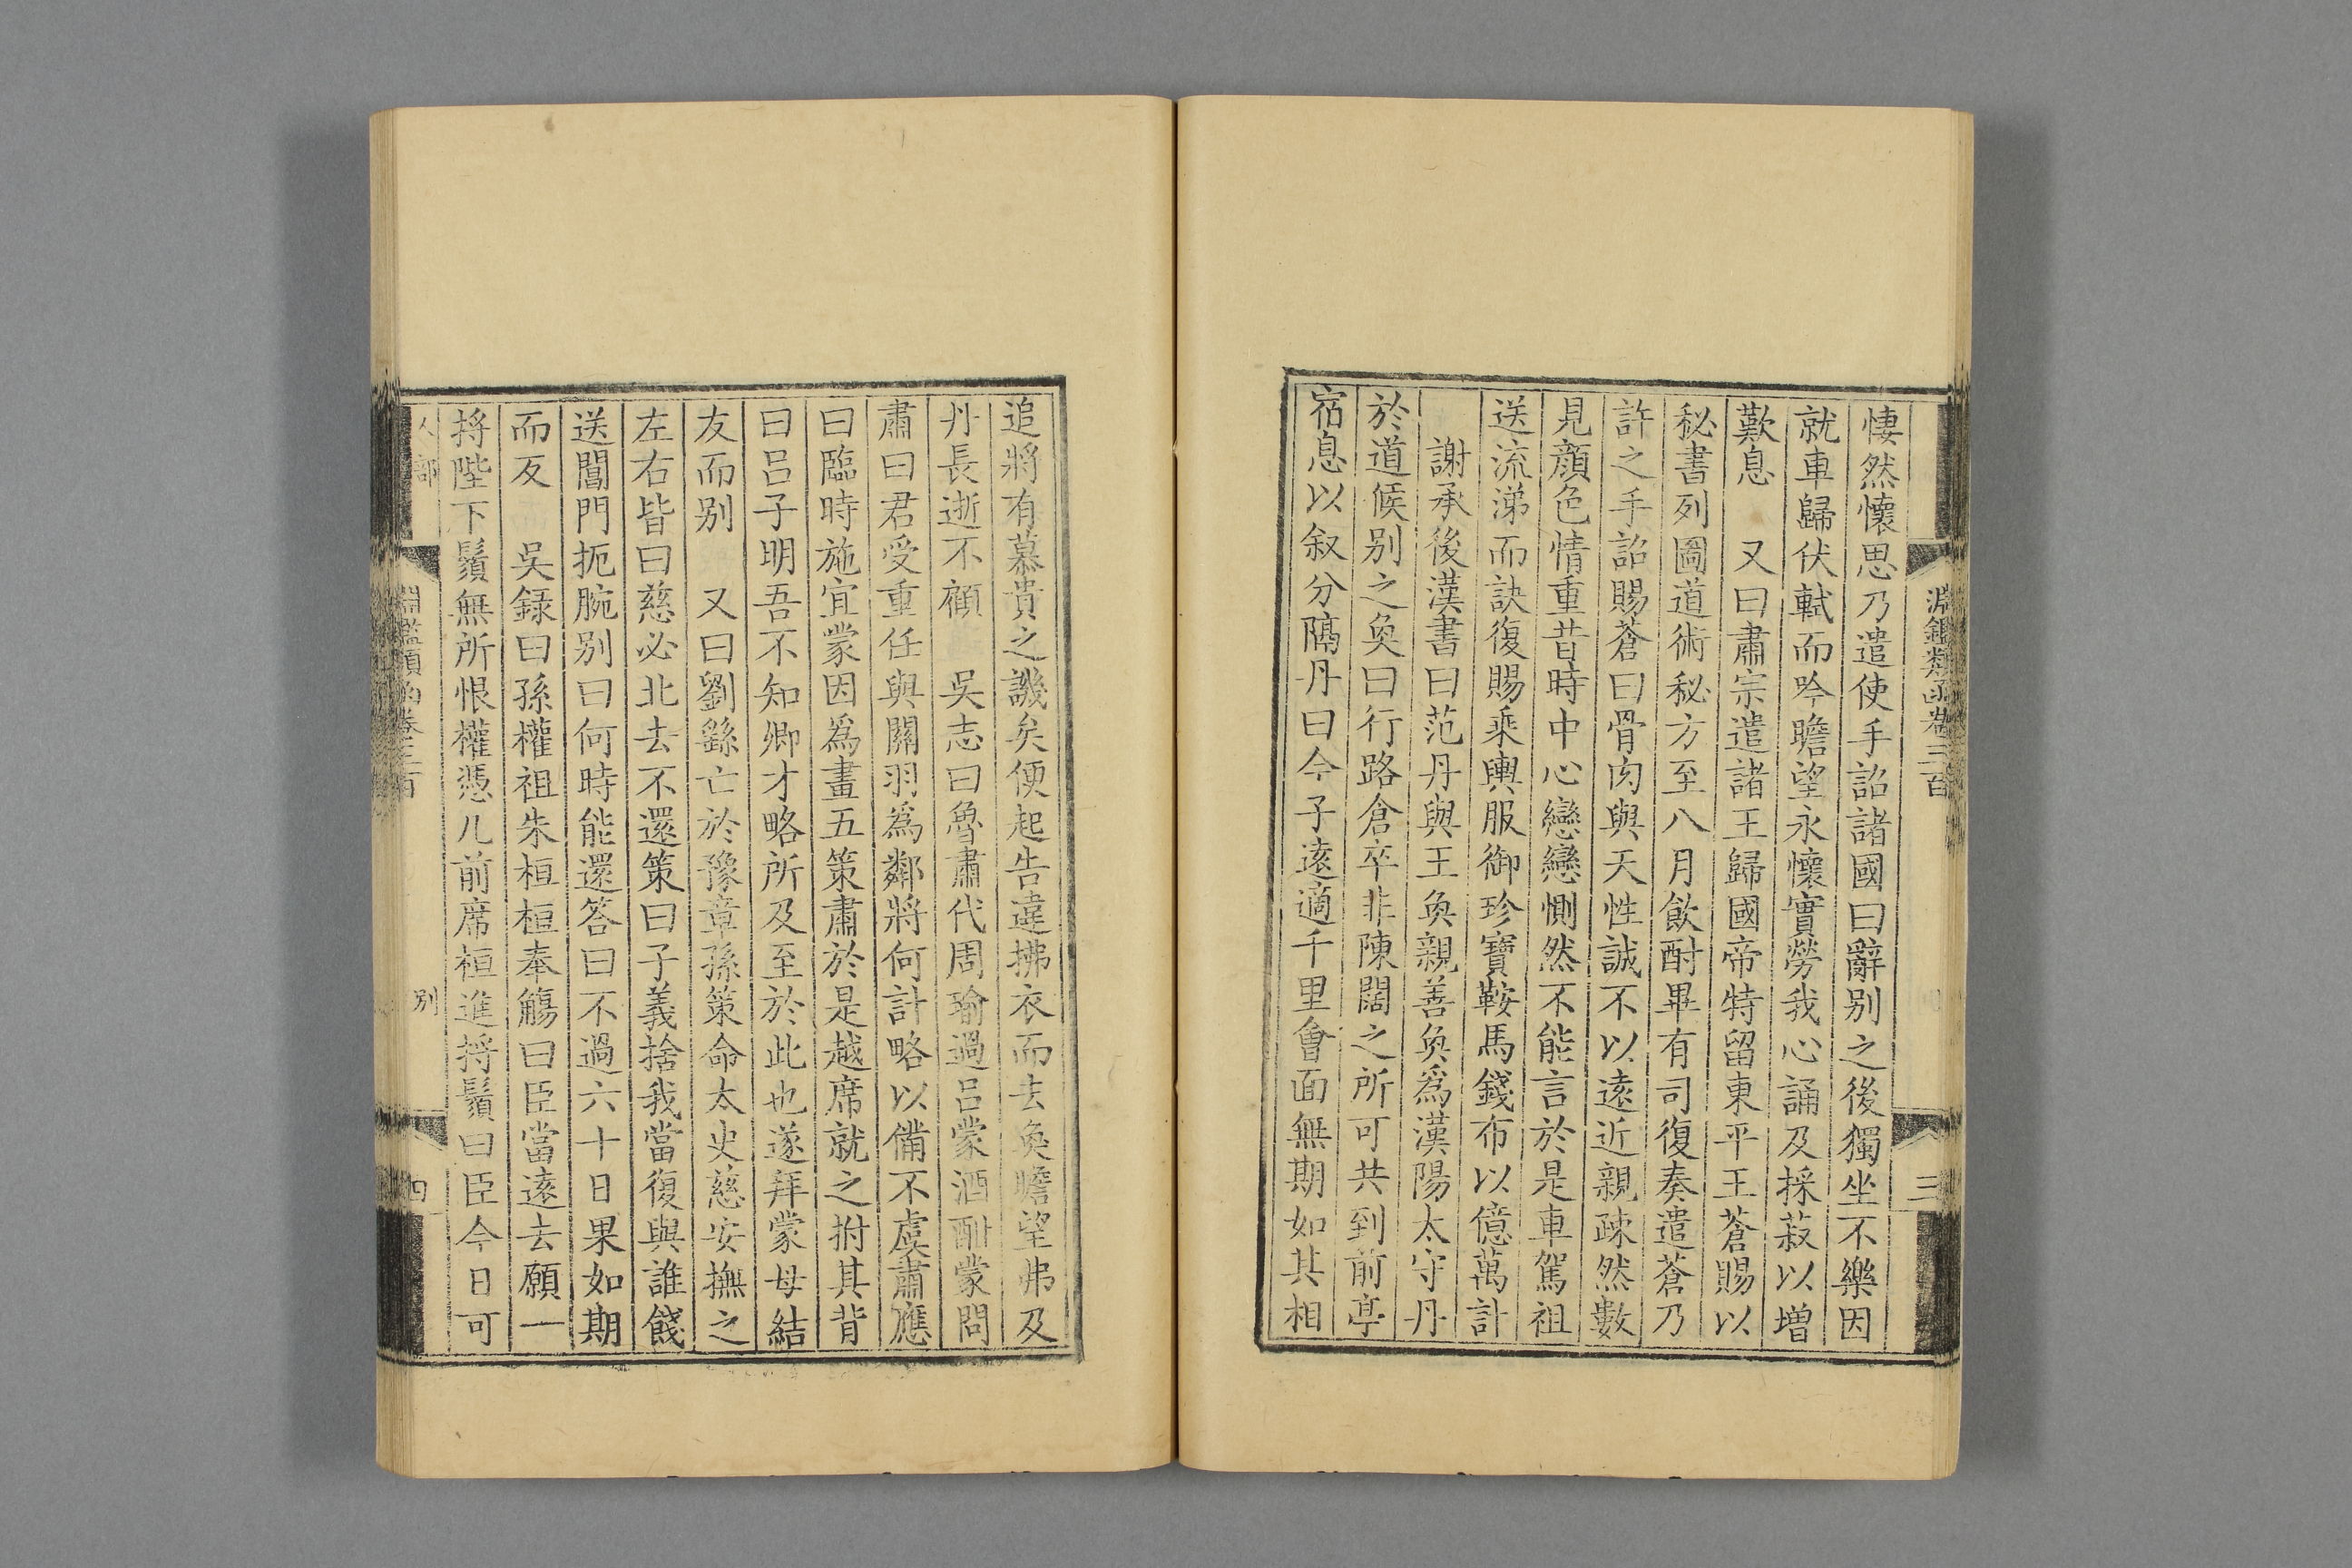 淵鑑類函卷三百
三
悽然懷思乃遣使手詔諸國曰辭别之後獨坐不樂因
就車歸伏軾而吟瞻望永懷實勞我心誦及採菽以増
歎息　又曰肅宗遣諸王歸國帝特留東平王蒼賜以
秘書列圖道術秘方至八月飲酎畢有司復奏遣蒼乃
許之手詔賜蒼曰骨肉與天性誠不以逺近親疎然數
見顔色情重昔時中心戀戀惻然不能言於是車駕祖
送流涕而訣復賜乘輿服御珍寶鞍馬錢布以億萬計
謝承後漢書曰范丹與王奐親善奐爲漢陽太守丹
於道候别之奐曰行路倉卒非陳闊之所可共到前亭
宿息以叙分隔丹曰今子逺適千里會面無期如其相
追將有慕貴之譏矣便起告違拂衣而去奐瞻望弗及
丹長逝不顧　吳志曰魯肅代周瑜過吕蒙酒酣蒙問
肅曰君受重任與關羽爲鄰將何計略以備不虞肅應
曰臨時施宜蒙因爲畫五策肅於是越席就之拊其背
曰吕子明吾不知卿才略所及至於此也遂拜蒙母結
友而别　又曰劉繇亡於豫章孫策命太史慈安撫之
左右皆曰慈必北去不還策曰子義捨我當復與誰餞
送閶門扼腕别曰何時能還答曰不過六十日果如期
而反　吳録曰孫權祖朱桓桓奉觴曰臣當逺去願一
捋陛下鬚無所恨權憑几前席桓進捋鬚曰臣今日可
人部
淵鑑類函卷三百
别
四